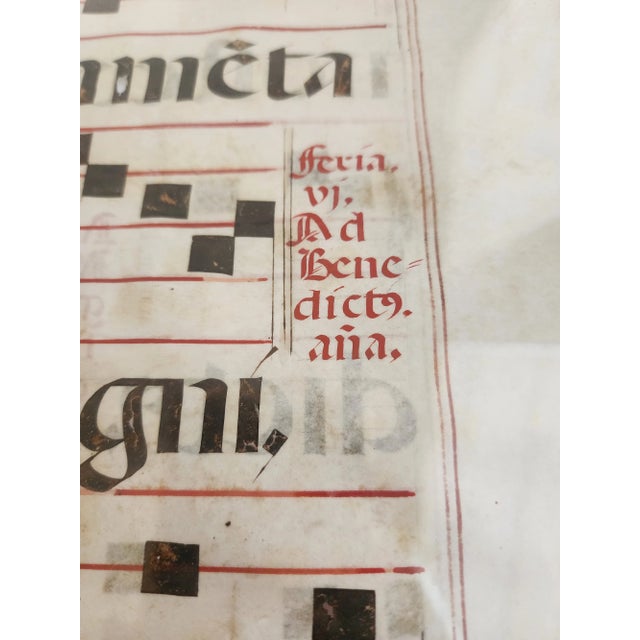 mẽta
Feria.
vj.
Ad
Bene=
dict9.
aña.
gni,